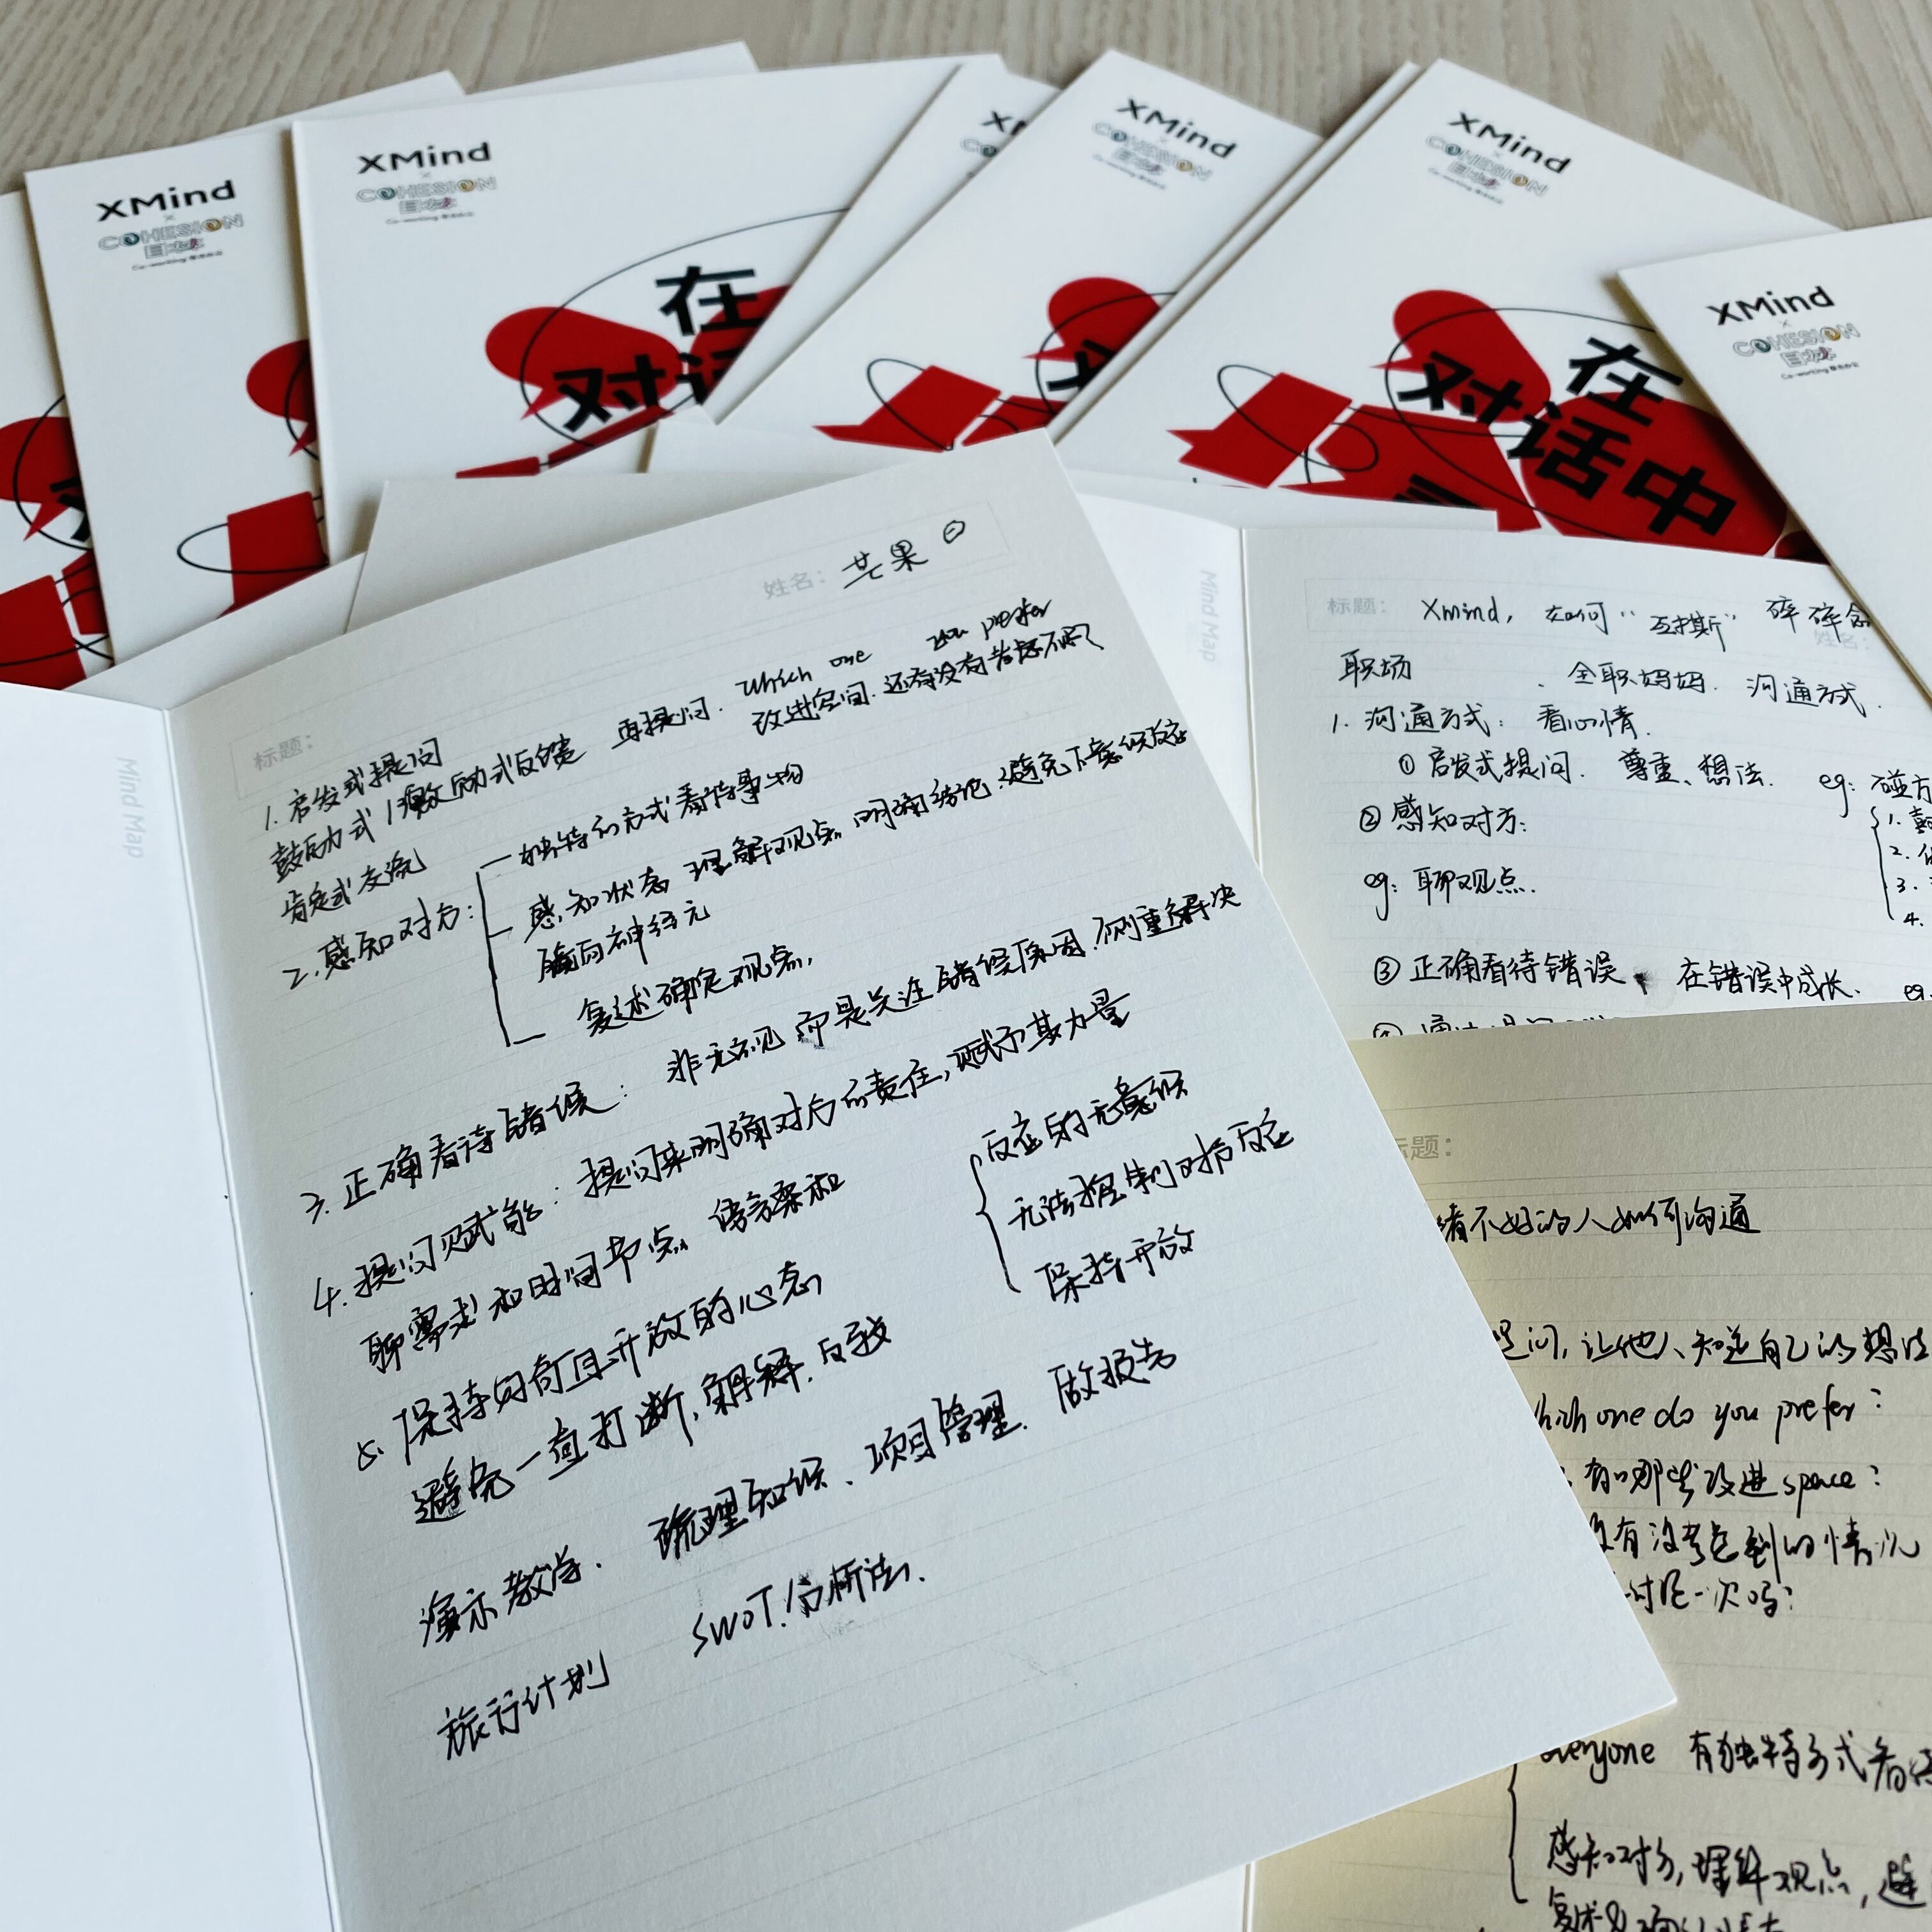 XMind
×
COHESION
目的地
Co-working
XMind
×
COHESION
目的地
Co-working
在
对话
XMind
XMind
COHESION
Co-working
XMind
COHESION
Co-working
在
对话中
XMind
×
COHESION
Co-working
Mind Map
标题:
姓名: 芒果
1. 启发式提问 再提问. Which one you prefer
鼓励式/激励式反馈 改进空间. 还有没有考虑不够
肯定式交流
2. 感知对方: 独特的方式看待事物
感知状态 理解观点 明确结论. 避免下意识反应
镜向神经元
复述确定观点,
3. 正确看待错误: 非无视 而是关注错误原因. 侧重解决
4. 提问赋能: 提问来明确对方的责任, 赋予其力量
聊需求和时间节点
5. 保持好奇且开放的心态
反应的无意识
无法控制对抗反应
保持开放
避免一直打断, 解释. 反驳
演示教学. 梳理知识、项目管理. 做报告
旅行计划 SWOT分析法.
Mind Map
标题: Xmind, 如何“ ” 碎碎念
姓名:
职场 全职妈妈. 沟通方式.
1. 沟通方式: 看心情.
① 启发式提问. 尊重、想法. eg:
② 感知对方:
1.
2.
3.
4.
eg: 聊观点.
③ 正确看待错误, 在错误中成长. eg.
标题:
绪不好的人如何沟通
提问, 让他人知道自己的想法
which one do you prefer?
有哪些改进space?
有没考虑到的情况
一次吗?
everyone 有独特方式看待
感知对方, 理解观点, 避